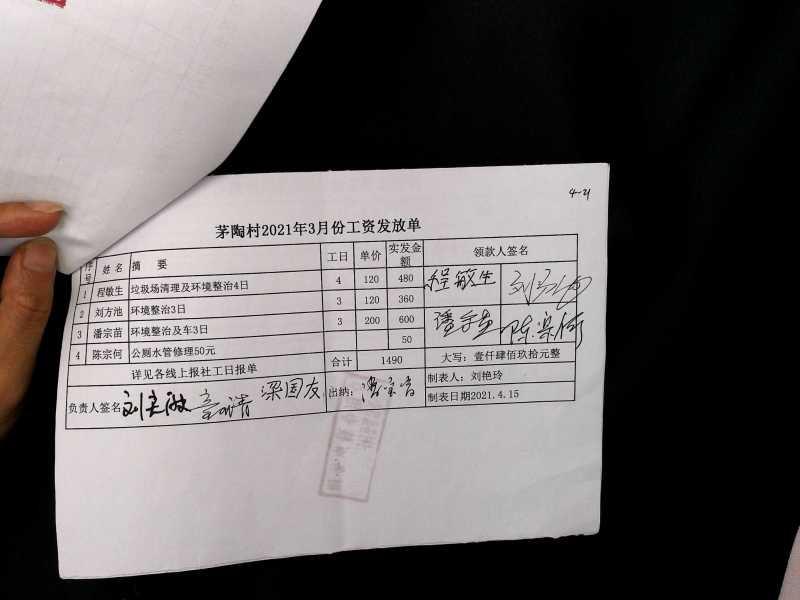 4-21
茅陶村2021年3月份工资发放单
序号 姓名 摘 要 工日 单价 实发金额 领款人签名
1 程敏生 垃圾场清理及环境整治4日 4 120 480 程敏生 刘方池
2 刘方池 环境整治3日 3 120 360
3 潘宗苗 环境整治及车3日 3 200 600 潘宗苗 陈宗何
4 陈宗何 公厕水管修理50元 50
详见各线上报社工日报单 合计 1490 大写：壹仟肆佰玖拾元整
负责人签名 梁国友 出纳： 制表人：刘艳玲
制表日期2021.4.15